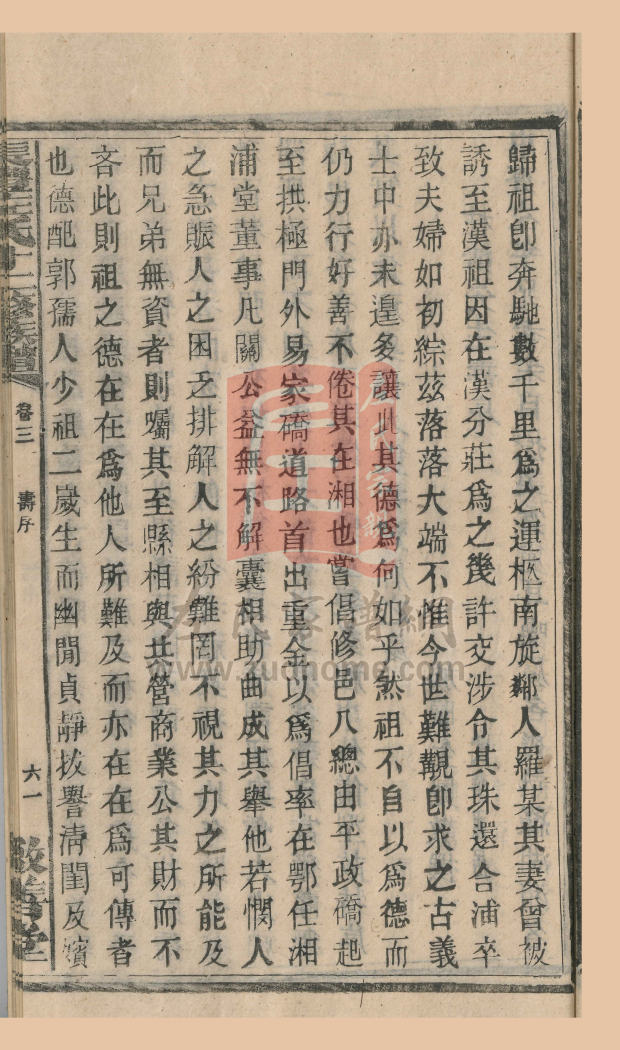 歸祖卽奔馳數千里爲之運柩南旋鄰人羅某其妻曾被
誘至漢祖因在漢分莊爲之幾許交涉令其珠還合浦卒
致夫婦如初綜茲落落大端不惟今世難覯卽求之古義
士中亦未遑多讓此其德爲何如乎然祖不自以爲德而
仍力行好善不倦其在湘也嘗倡修邑八總由平政礄起
至拱極門外易家礄道路首出重金以爲倡率在鄂任湘
浦堂董事凡關公益無不解囊相助曲成其舉他若憫人
之急賑人之困乏排解人之紛難罔不視其力之所能及
而兄弟無資者則囑其至縣相與共營商業公其財而不
吝此則祖之德在在爲他人所難及而亦在在爲可傳者
也德配郭孺人少祖二歲生而幽閒貞靜扳譽淸閨及嬪
氏十二修族譜
卷三
壽序
六一
敬善堂
www.zuqhome.com